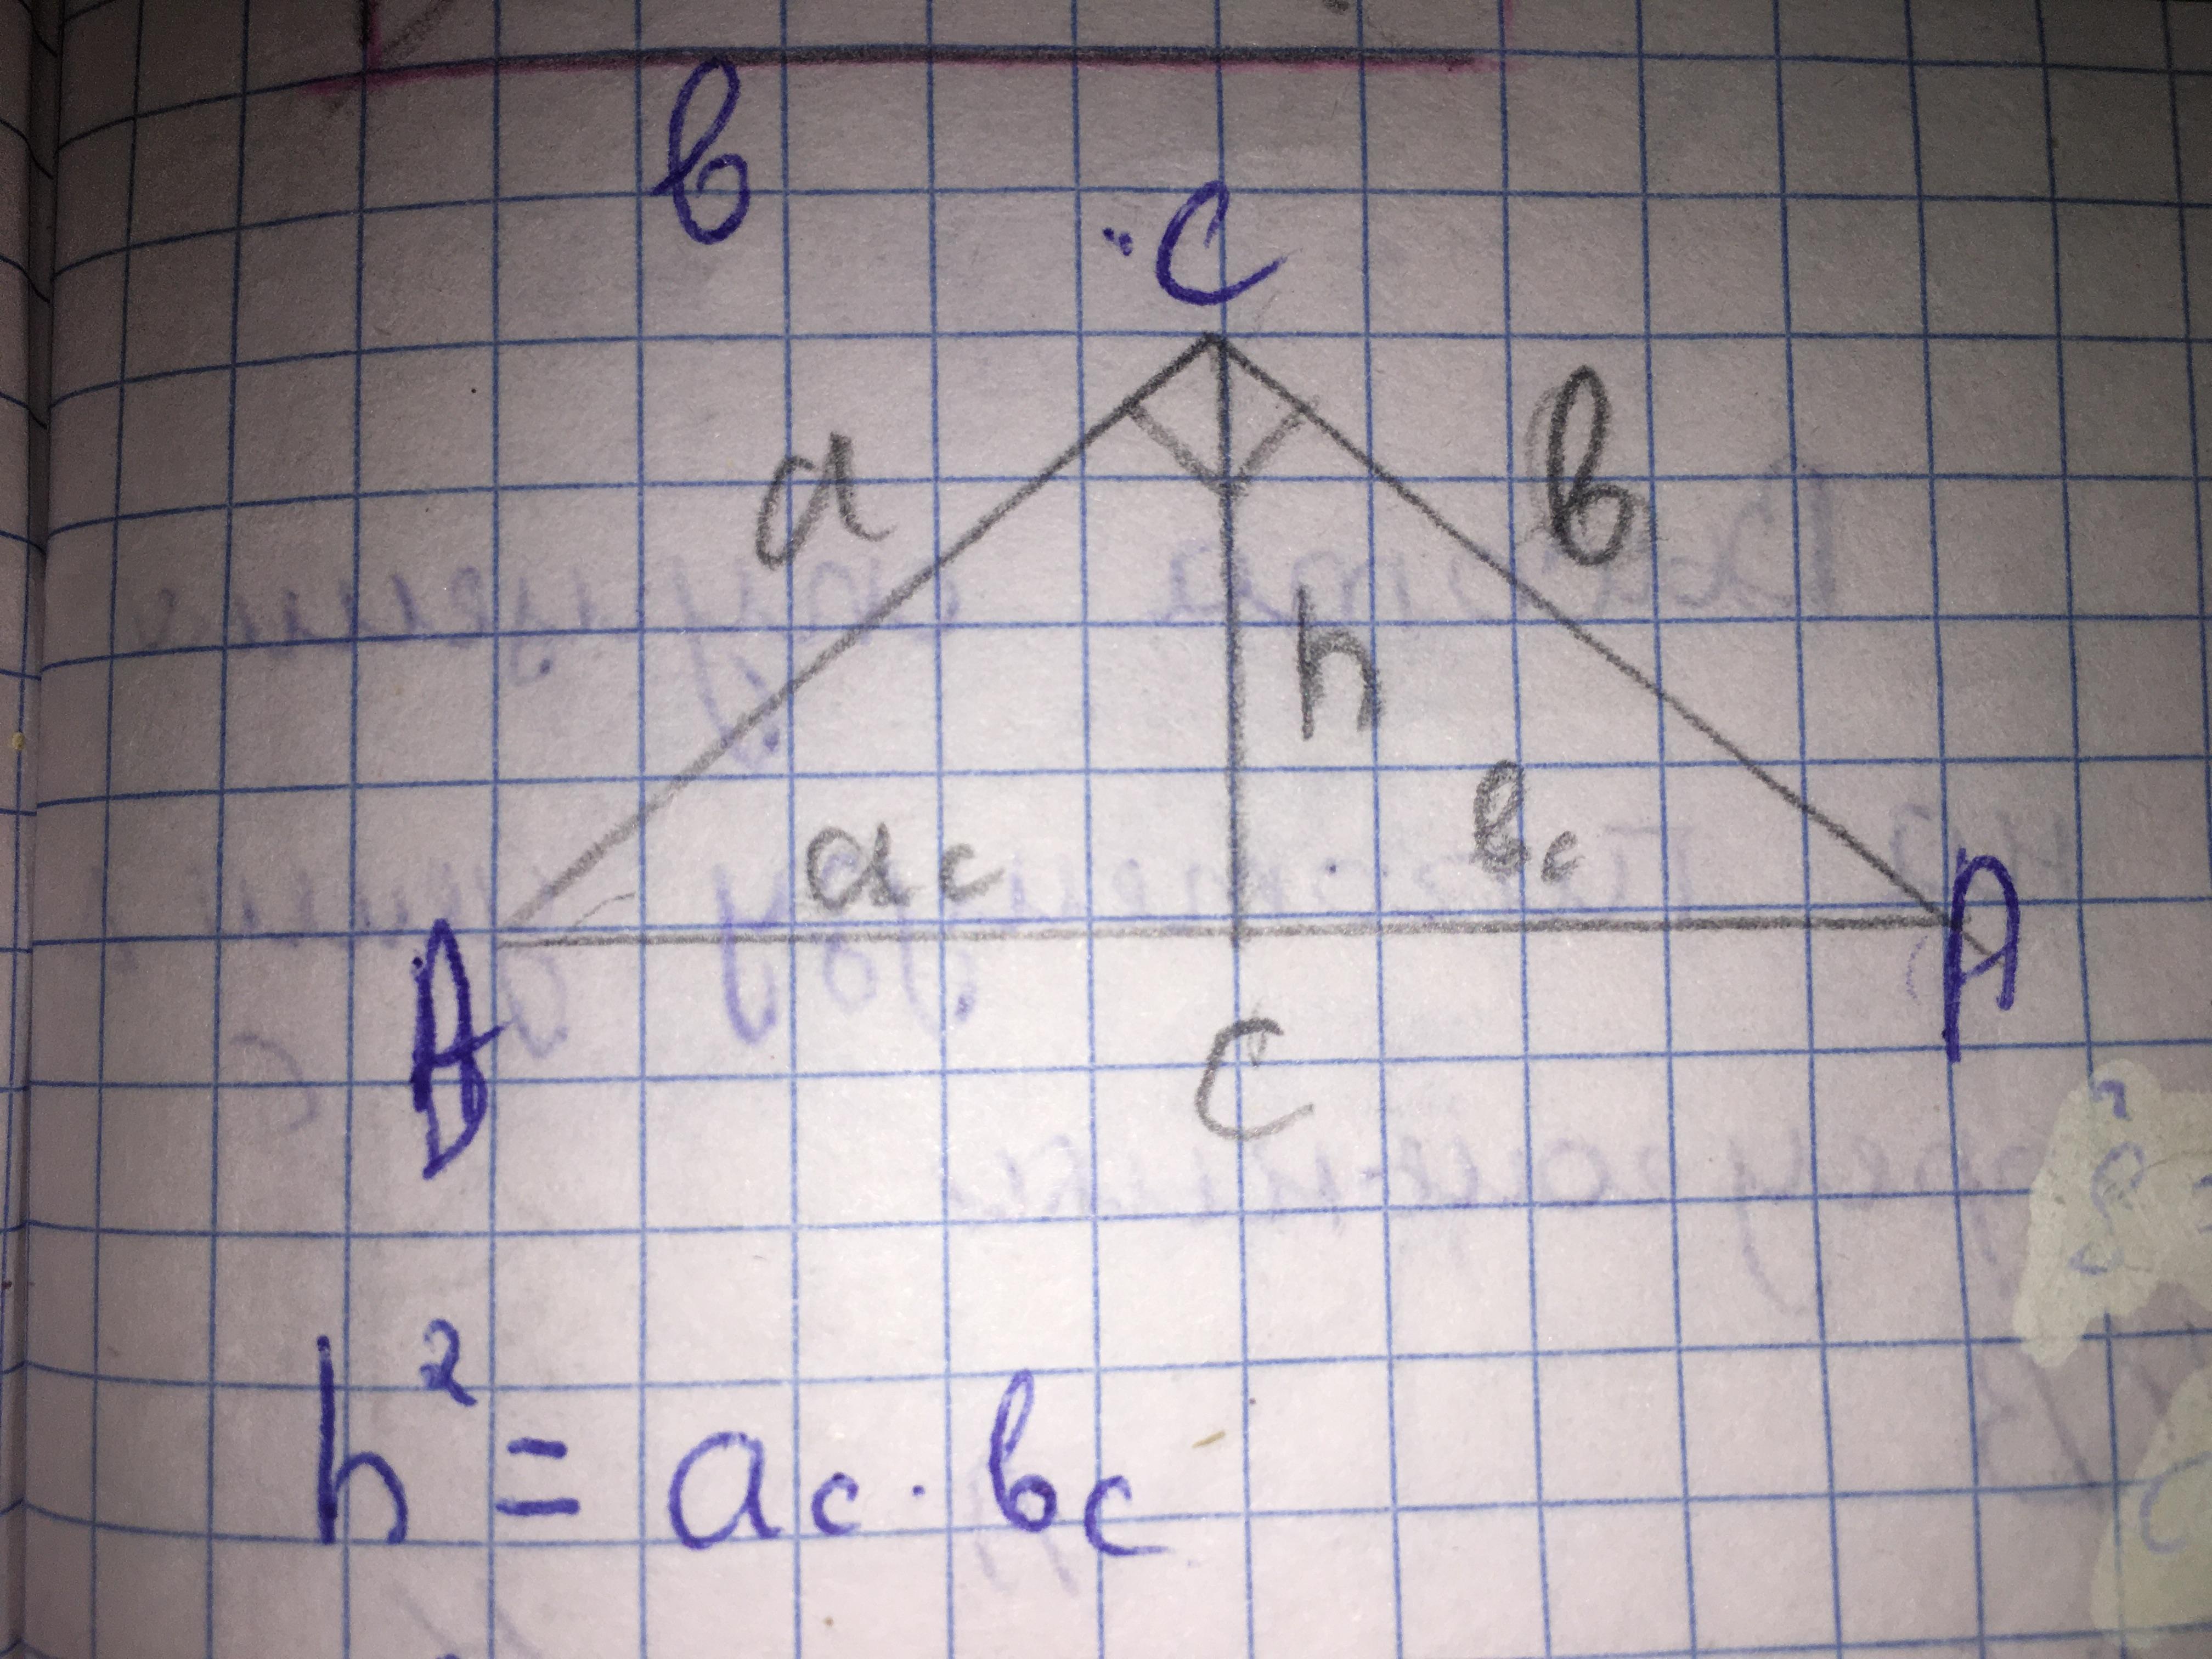 b
C
a b
h
ac bc
B A
C
h² = ac · bc